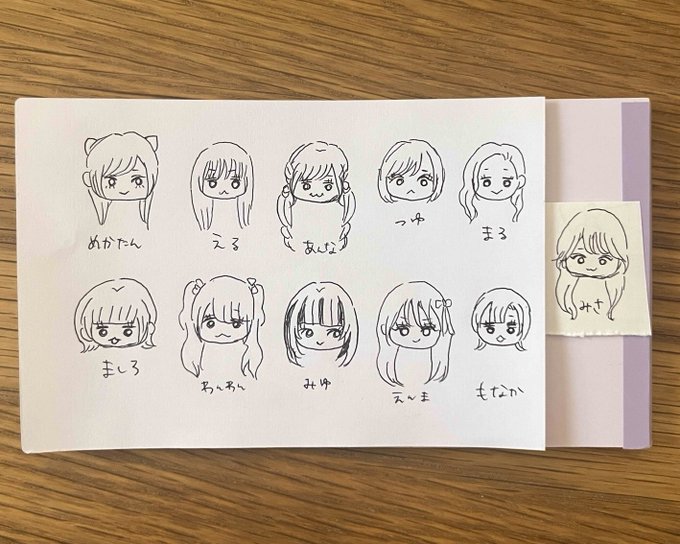 めかたん
える
あんな
つゆ
まる
ましろ
わんわん
みゆ
えんま
もなか
みさ